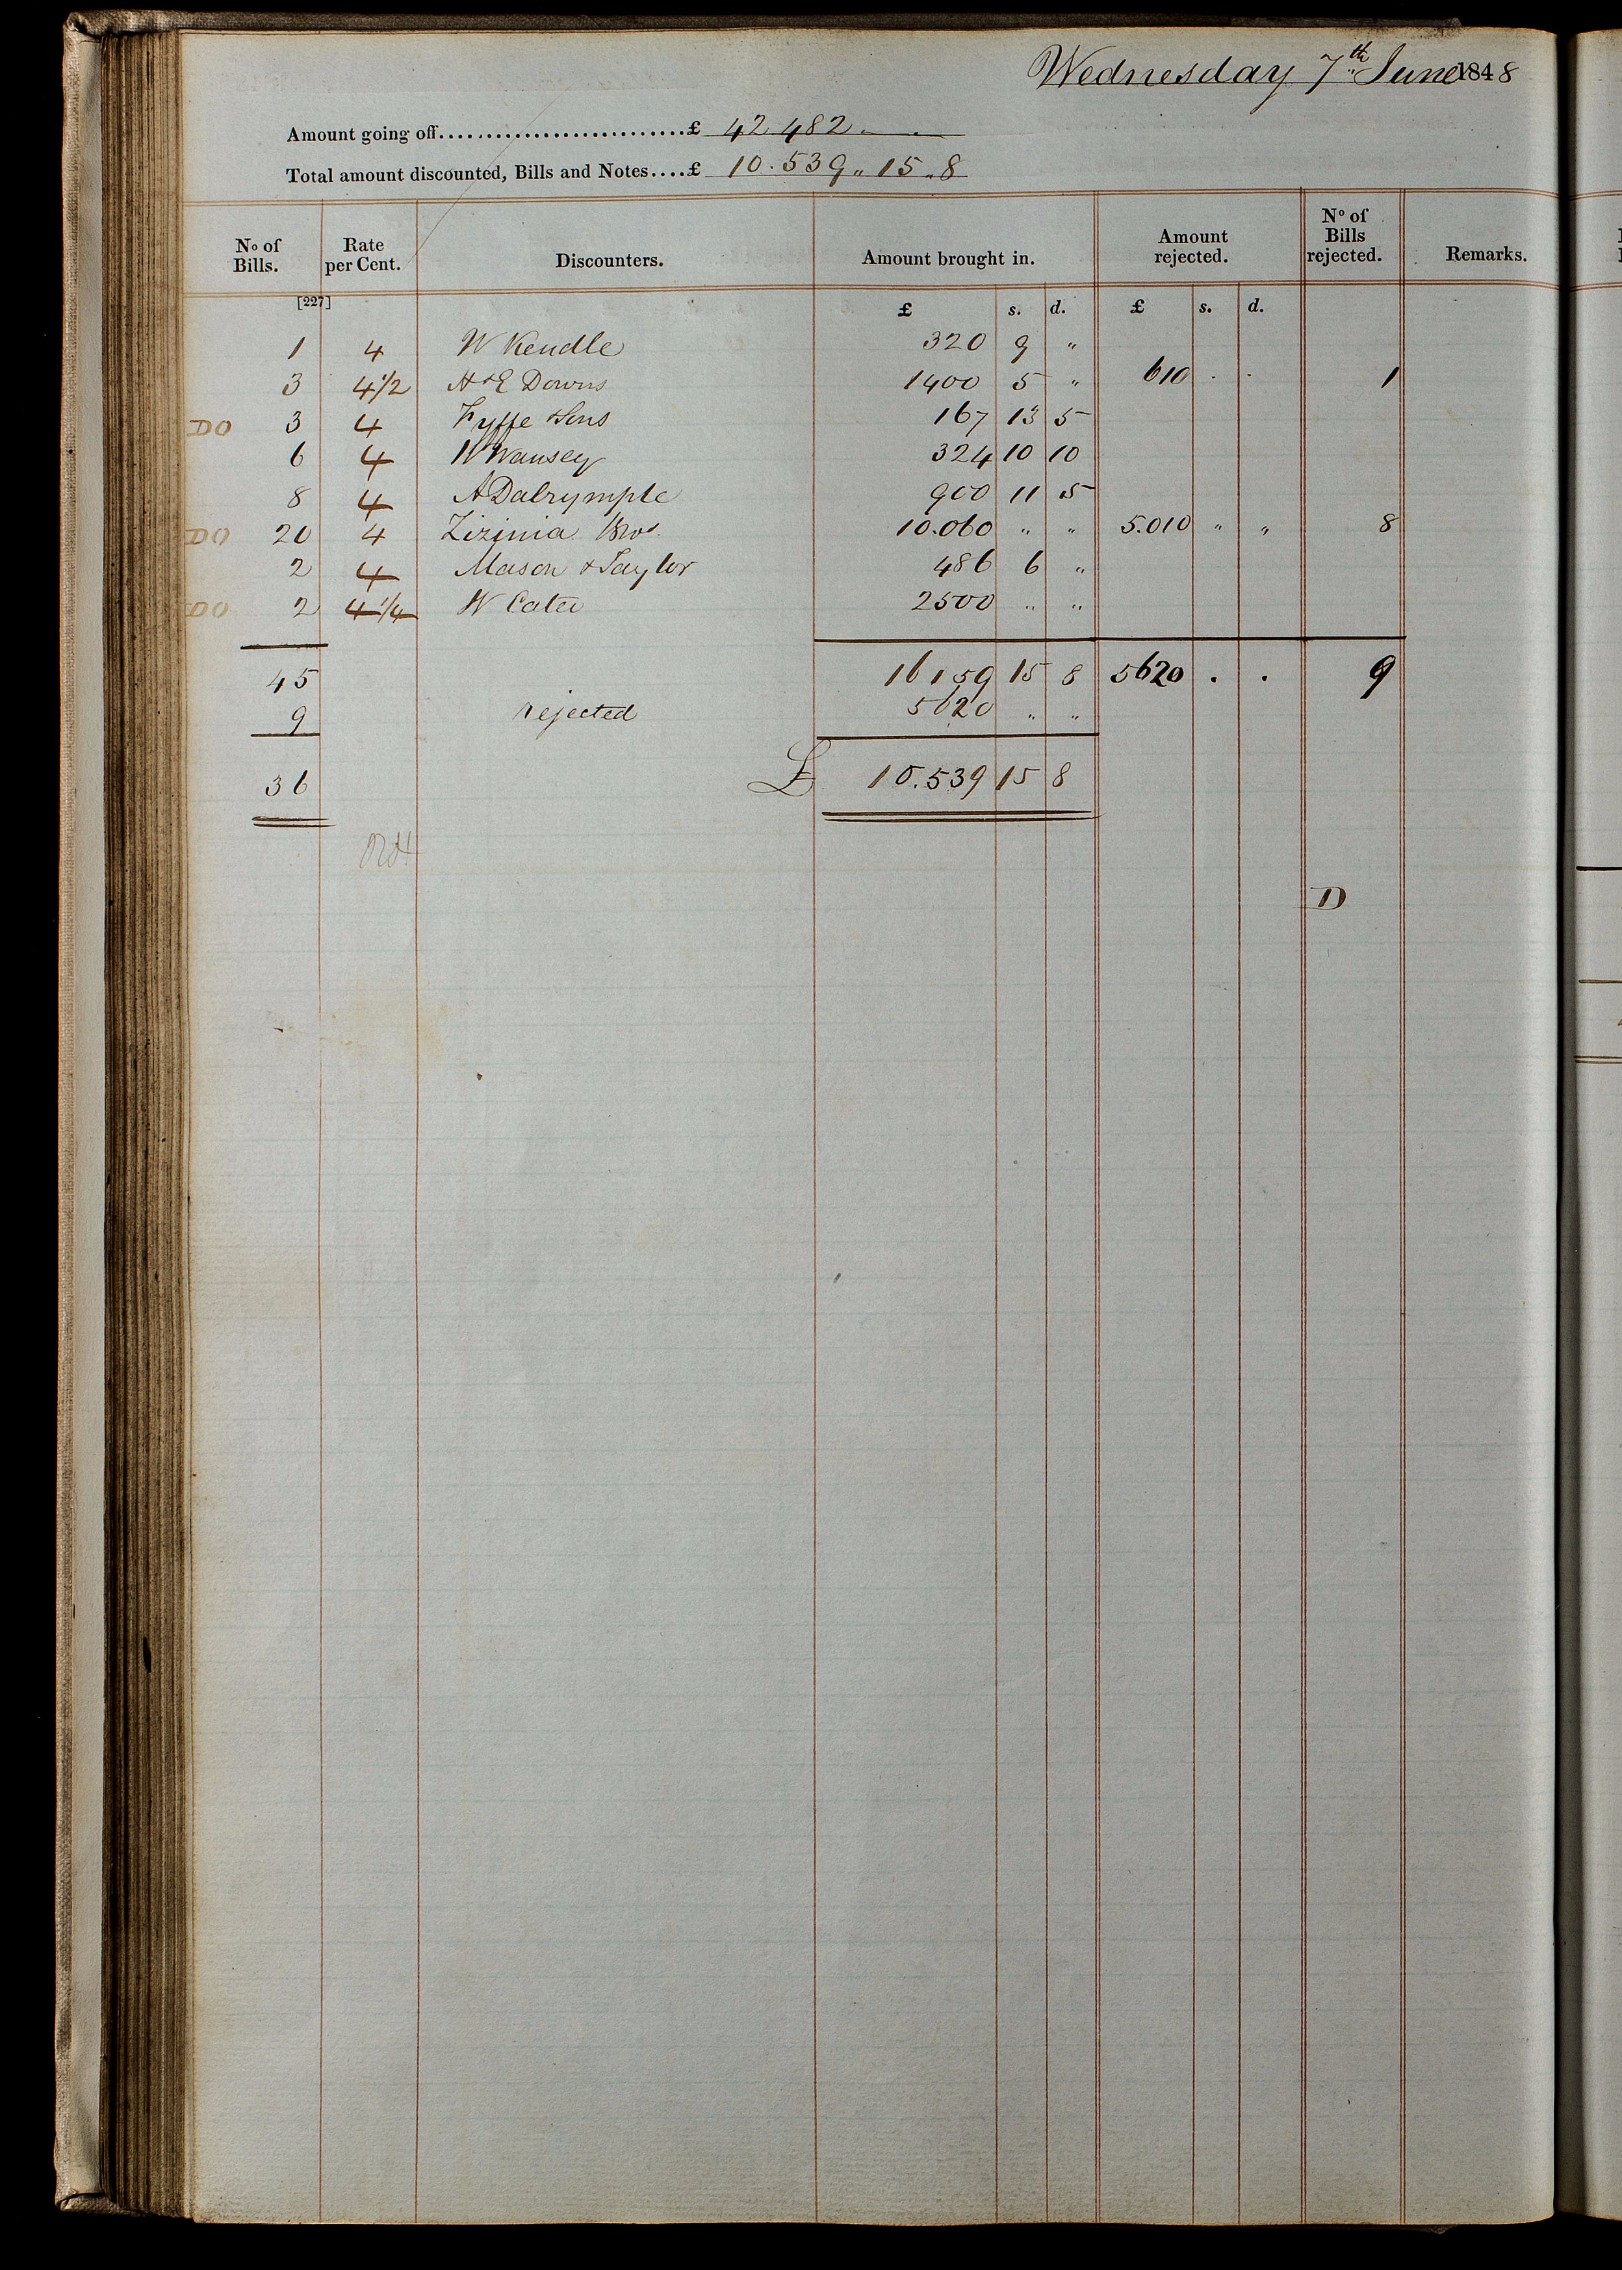 Wednesday 7th June 1848
Amount going off..........................£ 42 482 . .
Total amount discounted, Bills and Notes....£ 10.539 " 15 " 8
No of Bills. Rate per Cent. Discounters. Amount brought in. Amount rejected. No of Bills rejected. Remarks.
[227] £ s. d. £ s. d.
1 4 W Kendle 320 9 "
3 4 1/2 H & E Downs 1400 5 " 610 . . 1
DO 3 4 Fyffe & Sons 167 13 5
6 4 W Wansey 324 10 10
8 4 A Dalrymple 900 11 5
DO 20 4 Zizinia Bros 10.060 " " 5.010 " " 8
2 4 Mason & Taylor 486 6 "
DO 2 4 1/4 W Cater 2500 " "
45 16 159 15 8 5620 . . 9
9 rejected 5620 " "
36 £ 10.539 15 8
D